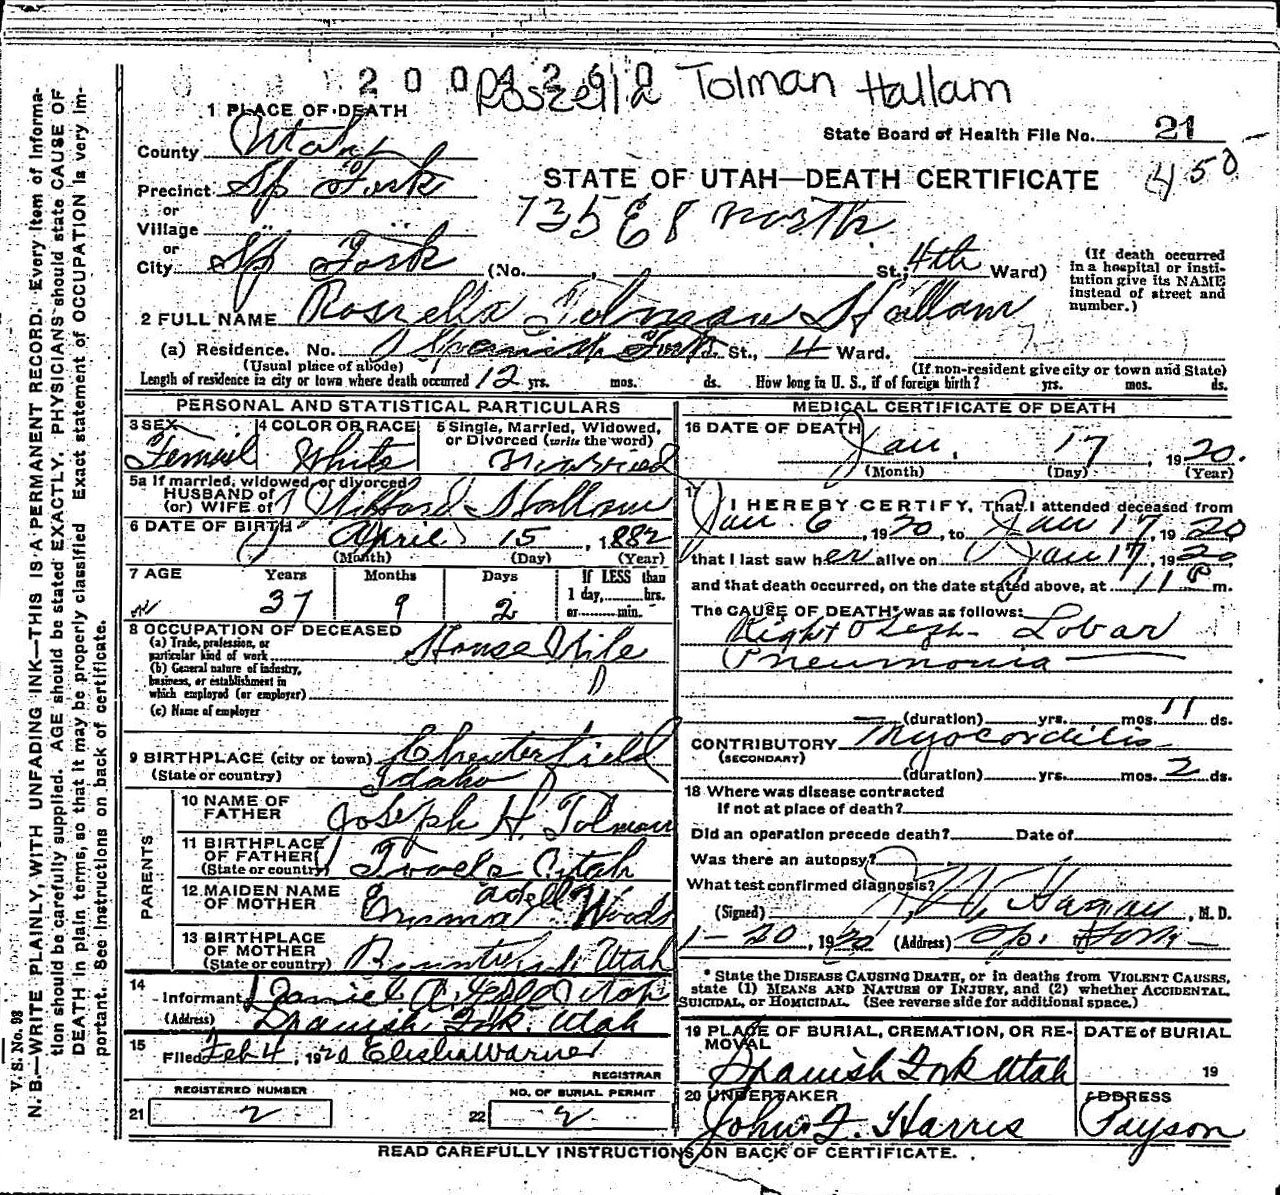 2 0 0 4 2 6 0
Roszella Tolman Hallam
1 PLACE OF DEATH
State Board of Health File No. 21
County Utah
450
Precinct Sp Fork
STATE OF UTAH—DEATH CERTIFICATE
or
Village
735 E 8 North
or
City Sp Fork (No. , St.; 4th Ward)
(If death occurred in a hospital or institution give its NAME instead of street and number.)
2 FULL NAME Roszella Tolman Hallam
(a) Residence. No. Spanish Fork St., 4 Ward.
(Usual place of abode) (If non-resident give city or town and State)
Length of residence in city or town where death occurred 12 yrs. mos. ds. How long in U. S., if of foreign birth? yrs. mos. ds.
PERSONAL AND STATISTICAL PARTICULARS
3 SEX 4 COLOR OR RACE 5 Single, Married, Widowed, or Divorced (write the word)
Femail White Married
5a If married, widowed, or divorced
HUSBAND of
(or) WIFE of Hallam
6 DATE OF BIRTH April 15, 1882
(Month) (Day) (Year)
7 AGE Years Months Days If LESS than
1 day, hrs.
37 9 2 or min.
8 OCCUPATION OF DECEASED
(a) Trade, profession, or
particular kind of work House Wife
(b) General nature of industry,
business, or establishment in
which employed (or employer)
(c) Name of employer
9 BIRTHPLACE (city or town) Chesterfield
(State or country) Idaho
PARENTS
10 NAME OF
FATHER Joseph H. Tolman
11 BIRTHPLACE
OF FATHER
(State or country) Tooele Utah
12 MAIDEN NAME
OF MOTHER Emma Adell Woods
13 BIRTHPLACE
OF MOTHER
(State or country) Utah
14
Informant Daniel
(Address) Spanish Fork Utah
15
Filed Feb 4, 1920 Elisha Warner
REGISTRAR
REGISTERED NUMBER NO. OF BURIAL PERMIT
21 2 22 2
MEDICAL CERTIFICATE OF DEATH
16 DATE OF DEATH
Jan. 17, 1920.
(Month) (Day) (Year)
17
I HEREBY CERTIFY, That I attended deceased from
Jan 6, 1920, to Jan 17, 1920
that I last saw her alive on Jan 17, 1920
and that death occurred, on the date stated above, at 11 P m.
The CAUSE OF DEATH* was as follows:
Right Lobar
Pneumonia
(duration) yrs. mos. 11 ds.
CONTRIBUTORY Myocarditis
(SECONDARY)
(duration) yrs. mos. 2 ds.
18 Where was disease contracted
If not at place of death?
Did an operation precede death? Date of
Was there an autopsy?
What test confirmed diagnosis?
(Signed) Hagan, M. D.
1-20, 1920 (Address) Sp. Fork
* State the DISEASE CAUSING DEATH, or in deaths from VIOLENT CAUSES,
state (1) MEANS AND NATURE OF INJURY, and (2) whether ACCIDENTAL,
SUICIDAL, or HOMICIDAL. (See reverse side for additional space.)
19 PLACE OF BURIAL, CREMATION, OR RE-
MOVAL DATE OF BURIAL
Spanish Fork Utah 19
20 UNDERTAKER ADDRESS
John F. Harris Payson
READ CAREFULLY INSTRUCTIONS ON BACK OF CERTIFICATE.
V. S. No. 98
N. B.—WRITE PLAINLY, WITH UNFADING INK—THIS IS A PERMANENT RECORD. Every item of informa-
tion should be carefully supplied. AGE should be stated EXACTLY. PHYSICIANS should state CAUSE OF
DEATH in plain terms, so that it may be properly classified. Exact statement of OCCUPATION is very im-
portant. See instructions on back of certificate.